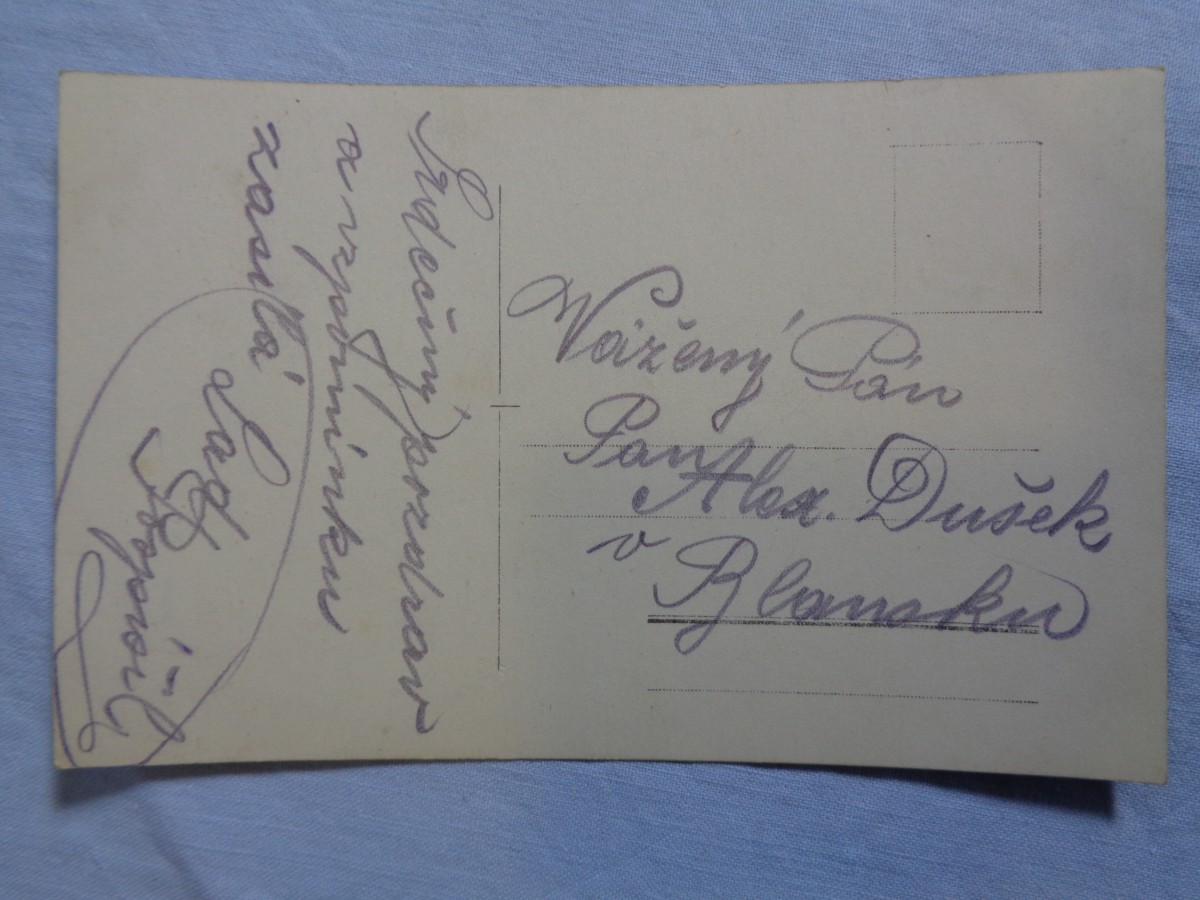 Srdečný pozdrav
a vzpomínku
zasílá Lad.
Pospíšil
Vážený Pán
Pan Alex. Dušek
v Blansku